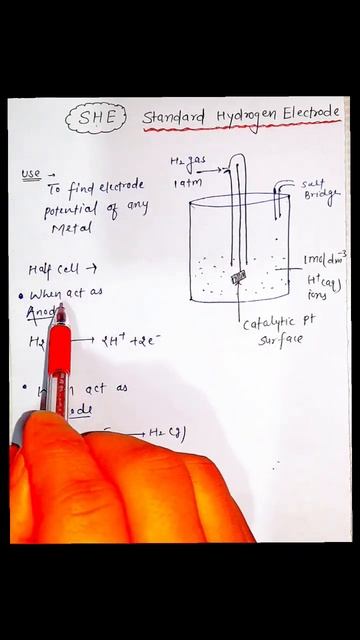 SHE Standard Hydrogen Electrode
USE →
To find electrode
potential of any
Metal
H₂ gas
1 atm
Salt
Bridge
1 mol dm⁻³
H⁺(aq)
ions
Catalytic Pt
Surface
Half Cell →
• When act as
H₂ → 2H⁺ + 2e⁻
• act as
→ H₂(g)